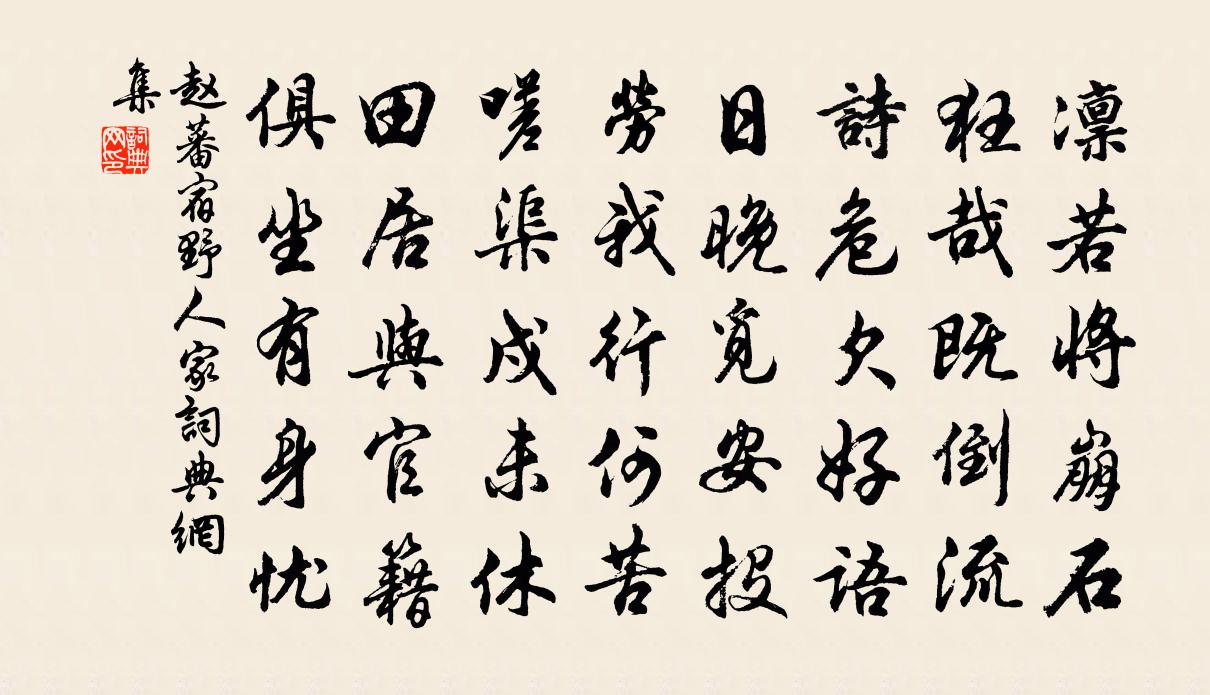 凛若将崩石
狂哉既倒流
詩危欠好語
日晚覓安投
勞我行何苦
嗟渠戍未休
田居與官籍
俱坐有身忧
赵蕃宿野人家詞典網
集
詞典
网印